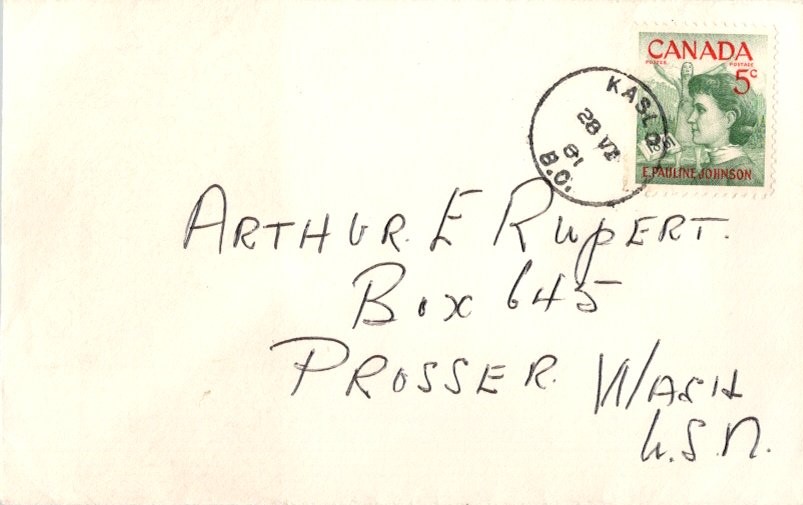 CANADA
POSTES POSTAGE
5c
1861
E. PAULINE JOHNSON
KASLO
28 VI
61
B.C.
ARTHUR. E RUPERT.
Box 645
PROSSER. WASH
U.S.A.